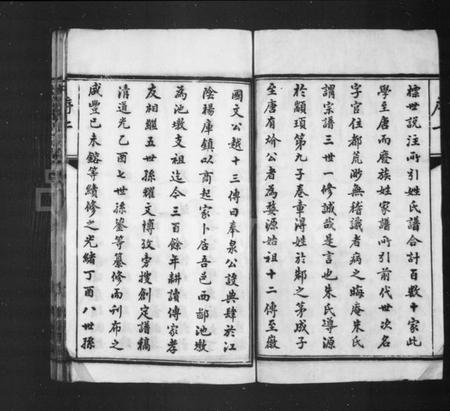 標世說注所引姓氏譜合計百數十家此
學至唐而廢族姓家譜所引前代世次名
字官位都荒渺無稽識者病之晦庵朱氏
謂宗譜三世一修誠哉是言也朱氏導源
於顓頊第九子卷章得姓於邾之茅成子
至唐有瑜公者為婺源始祖十二傳至徽
國文公越十三傳曰奉泉公設典肆於江
陰楊庫鎮以商起家卜居吾邑西鄙池墩
為池墩支祖迄今三百餘年耕讀傳家孝
友相繼五世孫耀文博攷旁搜創定譜稿
清道光乙酉七世孫鋆等纂修而刊布之
咸豐己未鎔等續修之光緒丁酉八世孫
序一
序二